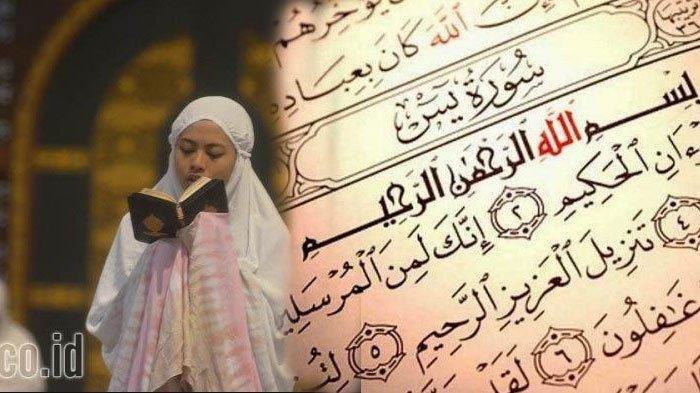 يُؤَخِّرُهُمْ
إِنَّ ٱللَّهَ كَانَ بِعِبَادِهِ
سُورَةُ يسٓ
بِسْمِ ٱللَّهِ ٱلرَّحْمَٰنِ ٱلرَّحِيمِ
ءَانِ ٱلْحَكِيمِ ٢ إِنَّكَ لَمِنَ ٱلْمُرْسَلِي
٤ تَنزِيلَ ٱلْعَزِيزِ ٱلرَّحِيمِ ٥ لِتُ
غَٰفِلُونَ ٦ لَقَدْ
co.id